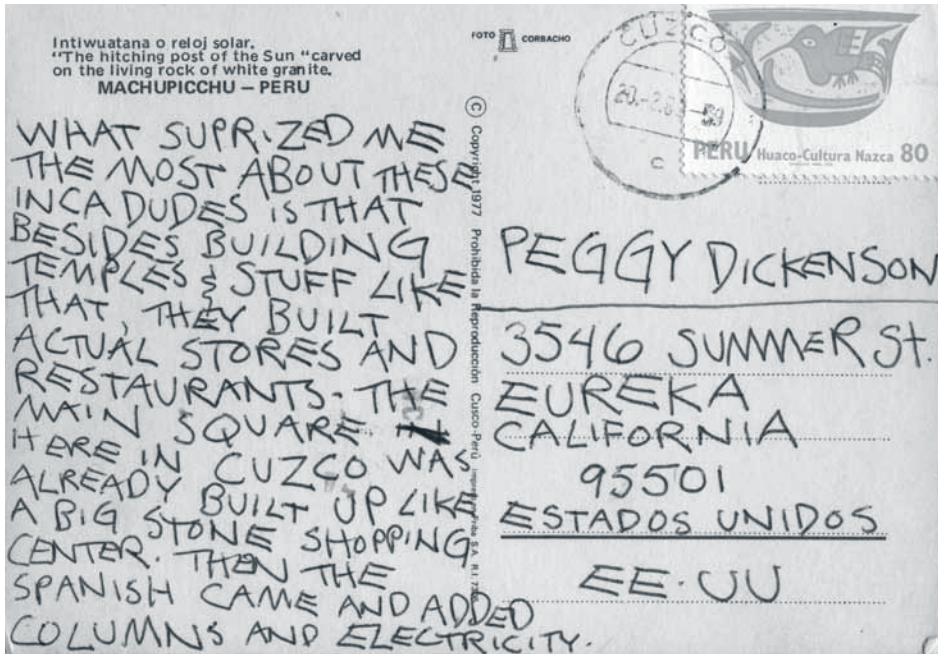 Intiwuatana o reloj solar.
"The hitching post of the Sun "carved
on the living rock of white granite.
MACHUPICCHU – PERU
WHAT SUPRIZED ME
THE MOST ABOUT THESE
INCA DUDES IS THAT
BESIDES BUILDING
TEMPLES & STUFF LIKE
THAT, THEY BUILT
ACTUAL STORES AND
RESTAURANTS. THE
MAIN SQUARE
HERE IN CUZCO WAS
ALREADY BUILT UP LIKE
A BIG STONE SHOPPING
CENTER. THEN THE
SPANISH CAME AND ADDED
COLUMNS AND ELECTRICITY.
FOTO CORBACHO
© Copyright 1977 Prohibida la Reproducción Cusco-Perú
CUZCO
C
PERU Huaco-Cultura Nazca 80
PEGGY DICKENSON
3546 SUMMER St.
EUREKA
CALIFORNIA
95501
ESTADOS UNIDOS
EE.UU